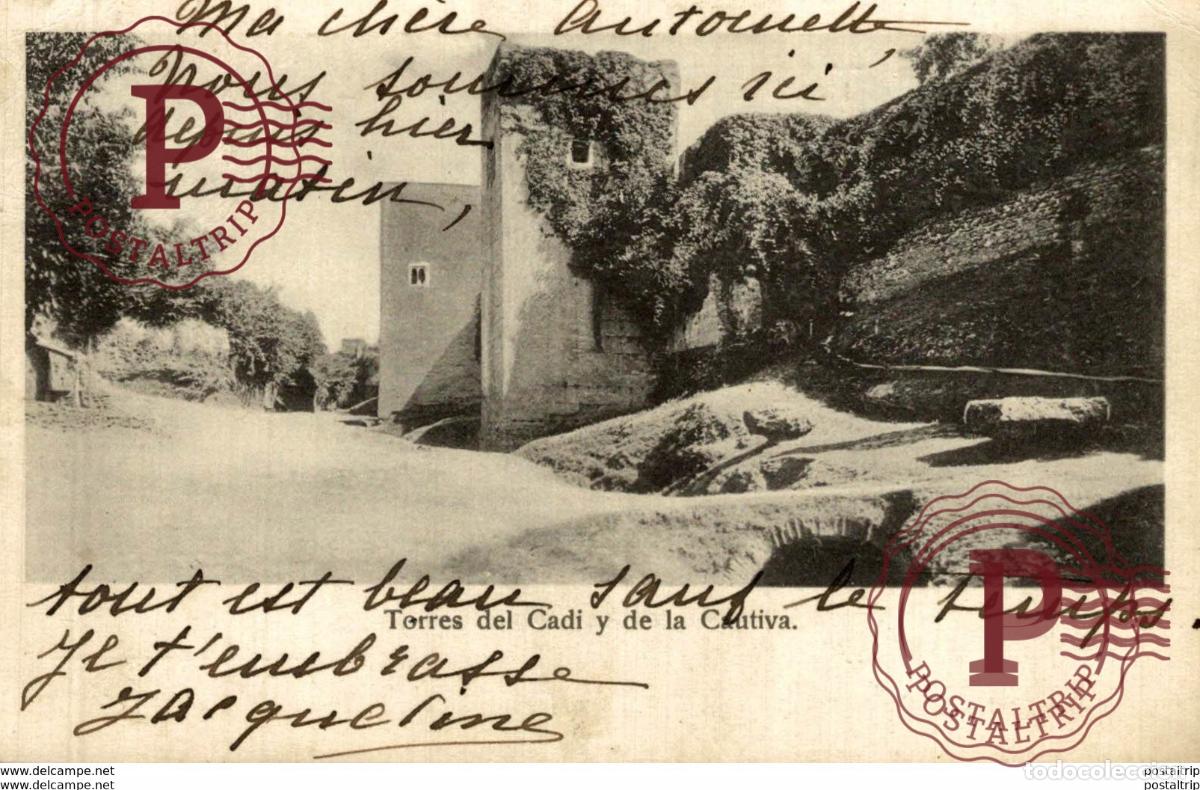 Ma chère Antoinette
Nous sommes ici
depuis hier
matin,
P
POSTALTRIP
tout est beau sauf le temps.
Torres del Cadi y de la Cautiva.
Je t'embrasse
Jacqueline
P
POSTALTRIP
POSTALTRIP
www.delcampe.net
postaltrip
todocoleccion
www.delcampe.net
postaltrip